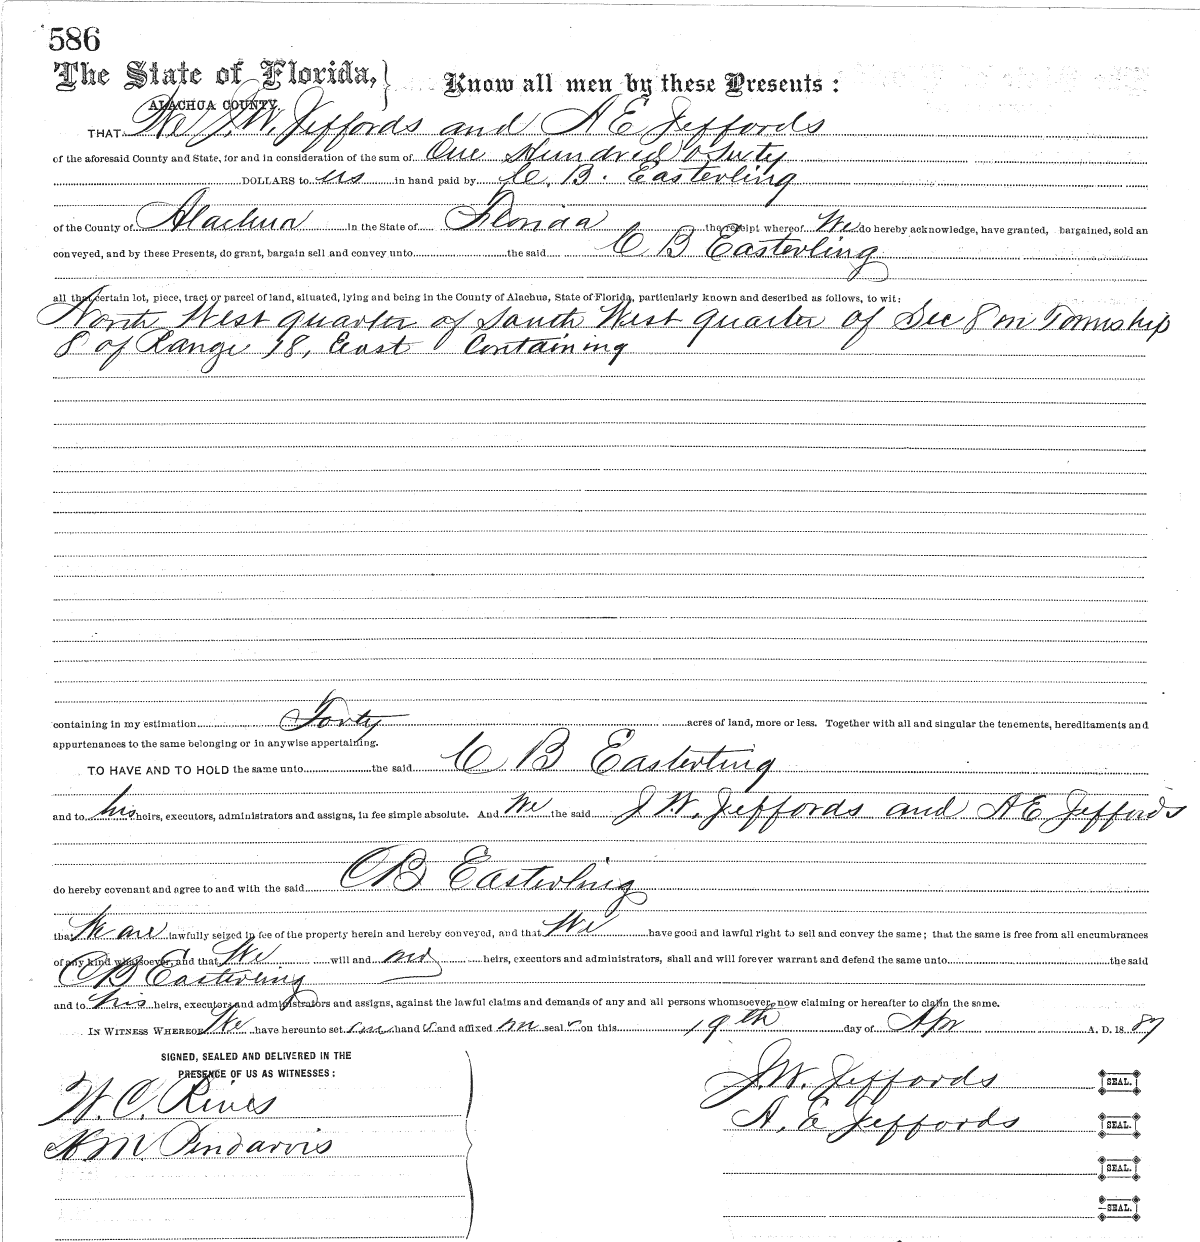 586
The State of Florida,
ALACHUA COUNTY.
Know all men by these Presents:
THAT We J. W. Jeffords and A E Jeffords
of the aforesaid County and State, for and in consideration of the sum of One Hundred &
DOLLARS to us in hand paid by C. B. Easterling
of the County of Alachua in the State of Florida the receipt whereof We do hereby acknowledge, have granted, bargained, sold an
conveyed, and by these Presents, do grant, bargain sell and convey unto the said C B Easterling
all that certain lot, piece, tract or parcel of land, situated, lying and being in the County of Alachua, State of Florida, particularly known and described as follows, to wit:
North West quarter of South West quarter of Sec 8 in Township
8 of Range 18, East Containing
containing in my estimation Forty acres of land, more or less. Together with all and singular the tenements, hereditaments and
appurtenances to the same belonging or in anywise appertaining.
TO HAVE AND TO HOLD the same unto the said C B Easterling
and to his heirs, executors, administrators and assigns, in fee simple absolute. And We the said J W. Jeffords and A E Jeffords
do hereby covenant and agree to and with the said C B Easterling
that We are lawfully seized in fee of the property herein and hereby conveyed, and that We have good and lawful right to sell and convey the same; that the same is free from all encumbrances
of any kind whatsoever, and that We will and our heirs, executors and administrators, shall and will forever warrant and defend the same unto the said
C B Easterling
and to his heirs, executors and administrators and assigns, against the lawful claims and demands of any and all persons whomsoever, now claiming or hereafter to claim the same.
IN WITNESS WHEREOF We have hereunto set our hand s and affixed our seal s on this 19th day of Apr A. D. 18 87
SIGNED, SEALED AND DELIVERED IN THE
PRESENCE OF US AS WITNESSES:
J. W. Jeffords SEAL.
W. C. Rives
A. E Jeffords SEAL.
M Pendarvis
SEAL.
SEAL.